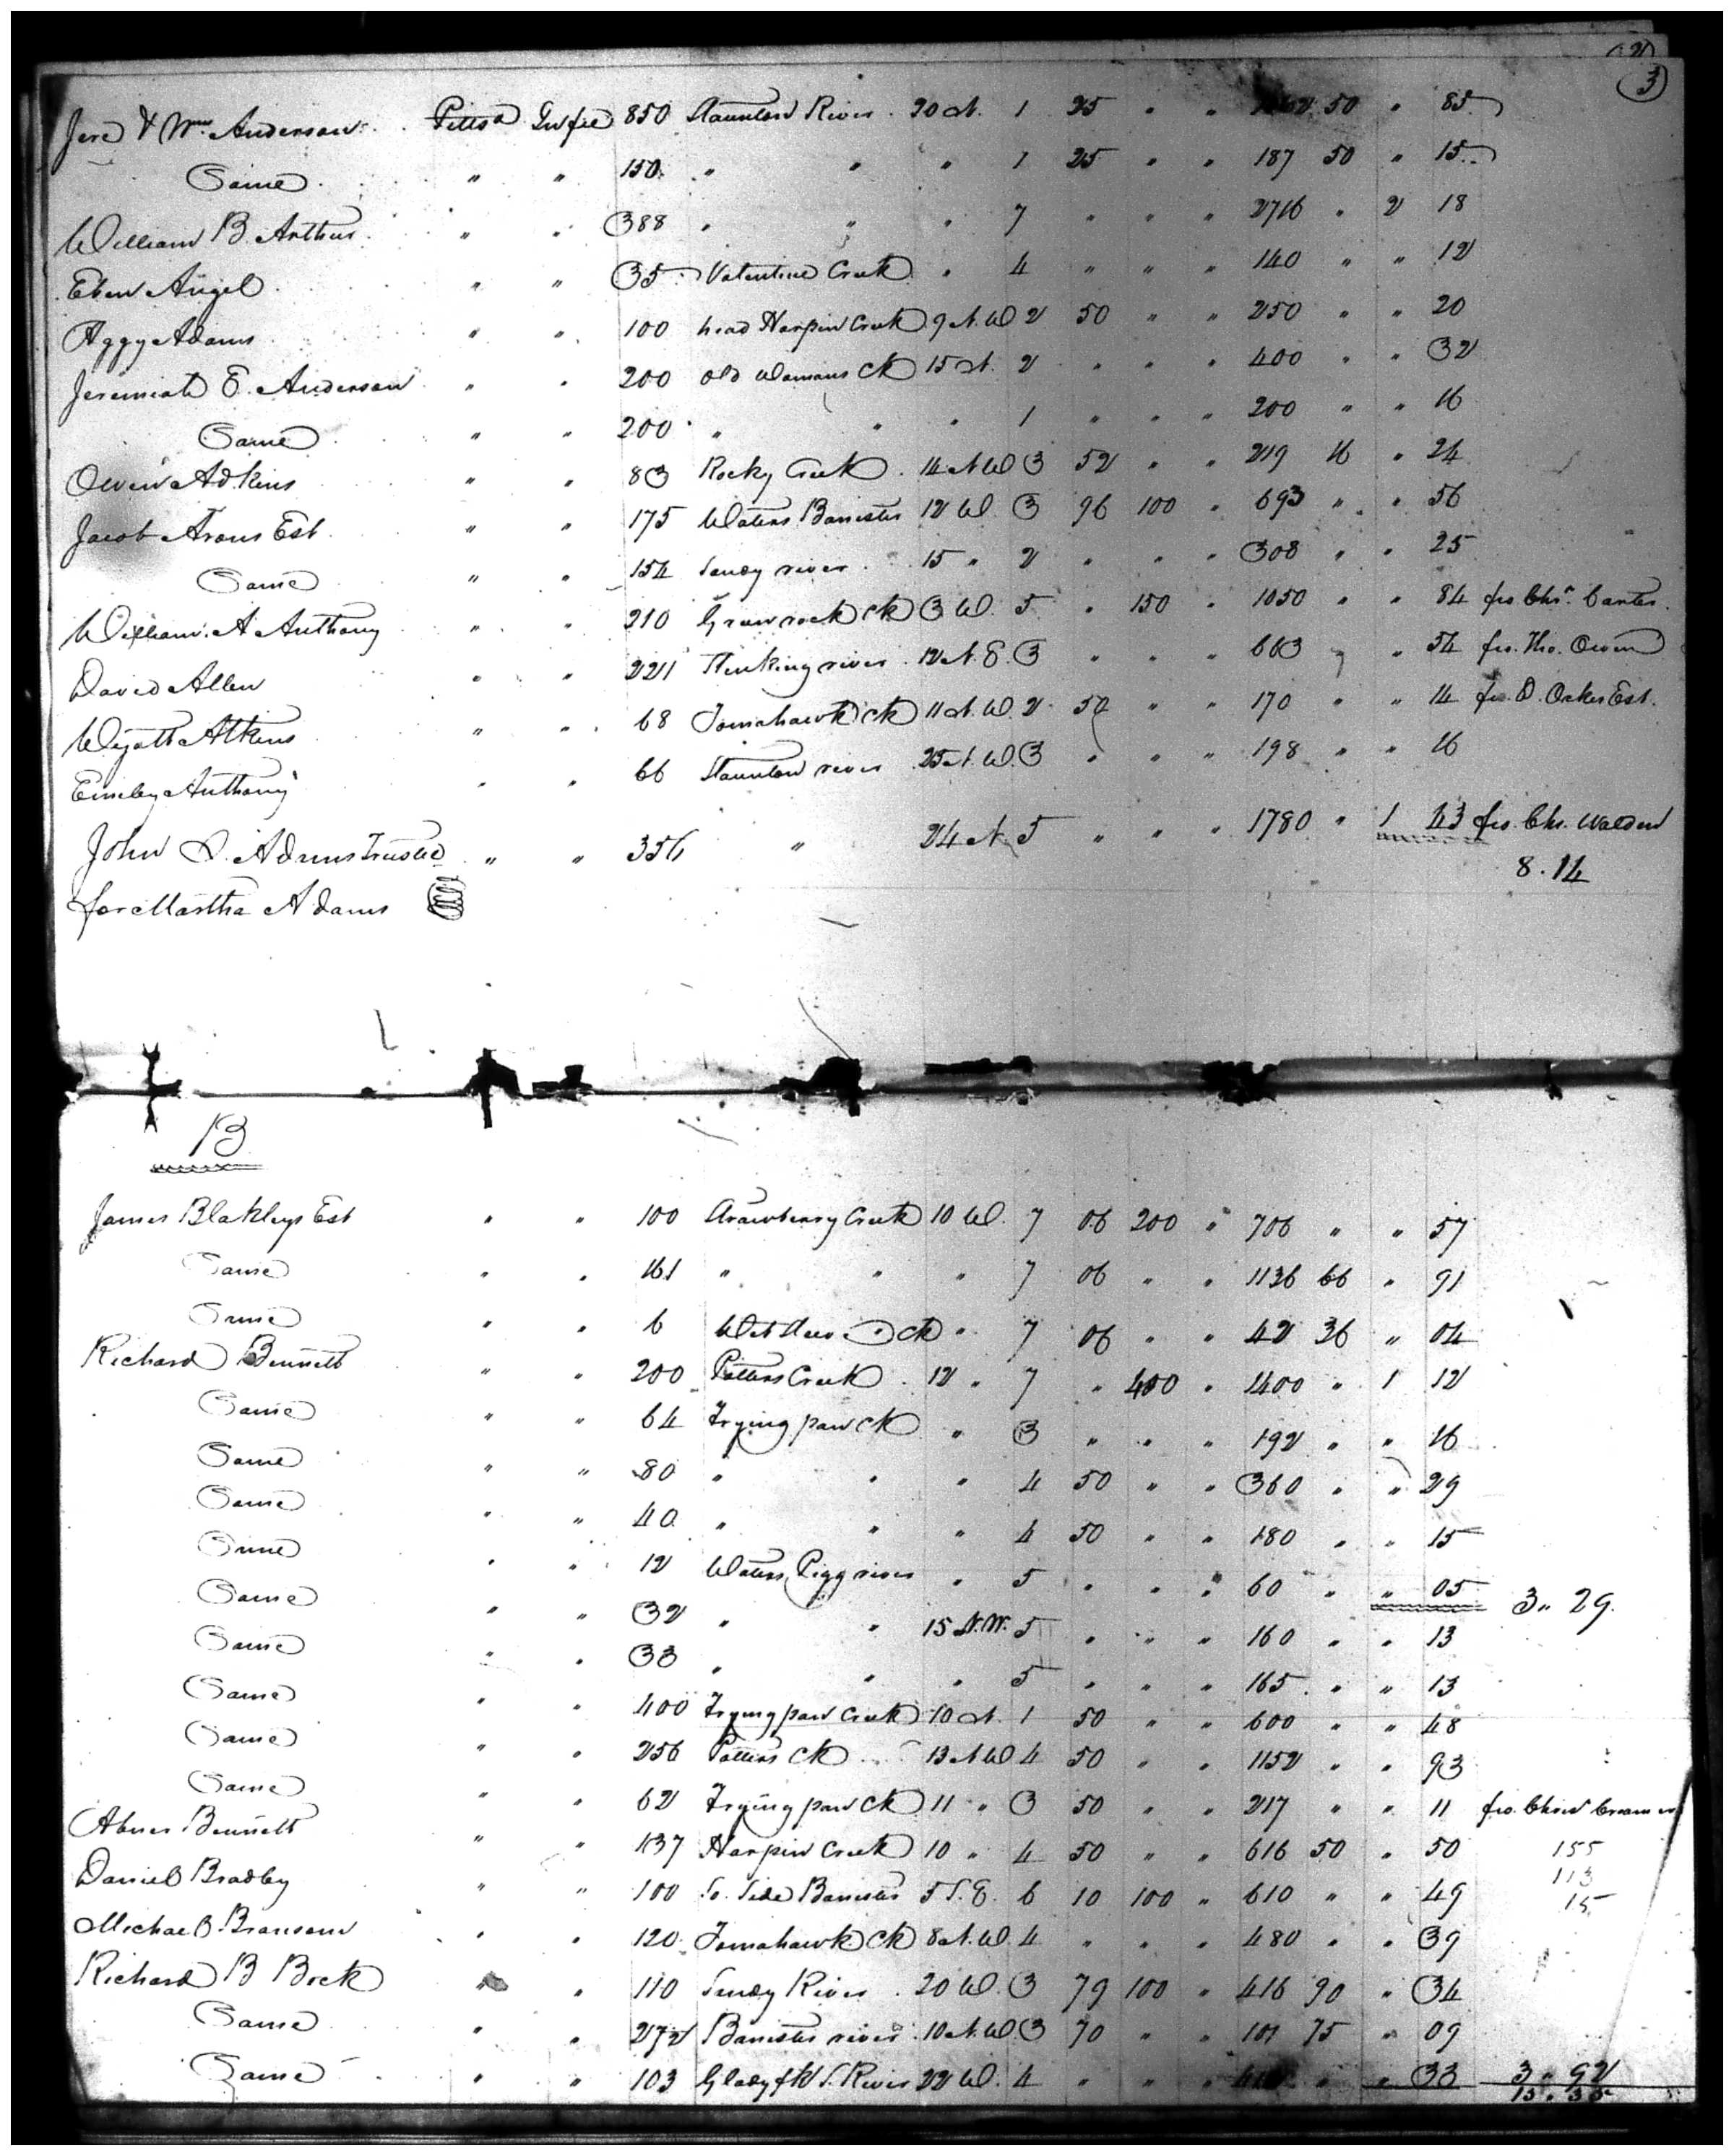 (2)
(3)
Jere & Wm Anderson Pittsa In fee 850 Staunton River 20 N. 1 25 " " 50 " 85
Same " " 150 " " " 1 25 " " 187 50 " 15
William B Arthur " " 388 " " " 7 " " " 2716 " 2 18
Eben Angel " " 35 Valentine Creek " 4 " " " 140 " " 12
Aggy Adams " " 100 head Harpin Creek 9 N.W 2 50 " " 250 " " 20
Jeremiah E. Anderson " " 200 Old Womans Ck 15 N. 2 " " " 400 " " 32
Same " " 200 " " " 1 " " " 200 " " 16
Owen Adkins " " 83 Rocky Creek 14 N W 3 52 " " 219 16 " 24
Jacob Arons Est " " 175 Waters Banister 12 W. 3 96 100 " 693 " " 56
Same " " 154 Sandy river 15 " 2 " " " 308 " " 25
William A Anthony " " 210 Ck 3 W. 5 " 150 " 1050 " " 84 fro. Chs. Carter
David Allen " " 221 Stinking river 12 N. E. 3 " " " 663 " " 54 fro. Tho. Owen
Wyatt Atkins " " 68 Tomahawk Ck 11 N. W. 2 50 " " 170 " " 14 fro. D. Est.
Emsley Anthony " " 66 Staunton river 25 N. W. 3 " " " 198 " " 16
John S. Adams Trustee " " 356 " 24 N. 5 " " " 1780 " 1 43 fro. Chs. Walden
for Martha Adams
8.14
B
James Blakleys Est " " 100 Strawberry Creek 10 W. 7 06 200 " 706 " " 57
Same " " 161 " " " 7 06 " " 1136 66 " 91
Same " " 6 Ck " 7 06 " " 42 36 " 04
Richard Bennett " " 200 Potters Creek 12 " 7 " 400 " 1400 " 1 12
Same " " 64 Frying pan Ck " 3 " " " 192 " " 16
Same " " 80 " " " 4 50 " " 360 " " 29
Same " " 40 " " " 4 50 " " 180 " " 15
Same " " 12 Waters Pigg river " 5 " " " 60 " " 05 3 " 29.
Same " " 32 " " 15 N.W. 5 " " " 160 " " 13
Same " " 33 " " " 5 " " " 165 " " 13
Same " " 400 Frying pan Creek 10 N. 1 50 " " 600 " " 48
Same " " 256 Potters Ck 13 N W 4 50 " " 1152 " " 93
Same " " 62 Frying pan Ck 11 " 3 50 " " 217 " " 11 fro.
Abner Bennett " " 137 Harpin Creek 10 " 4 50 " " 616 50 " 50 155
Daniel Bradley " " 100 So. Side Banister 5 S. E. 6 10 100 " 610 " " 49 113
15
Michael Bransom " " 120 Tomahawk Ck 8 N. W. 4 " " " 480 " " 39
Richard B Beck " " 110 Sandy River 20 W. 3 79 100 " 416 90 " 34
Same " " Banister river 10 N. W 3 70 " " 101 75 " 09
Same " " 103 Glady fk S. River 22 W. 4 " " " " " 33 3 " 92
15.35